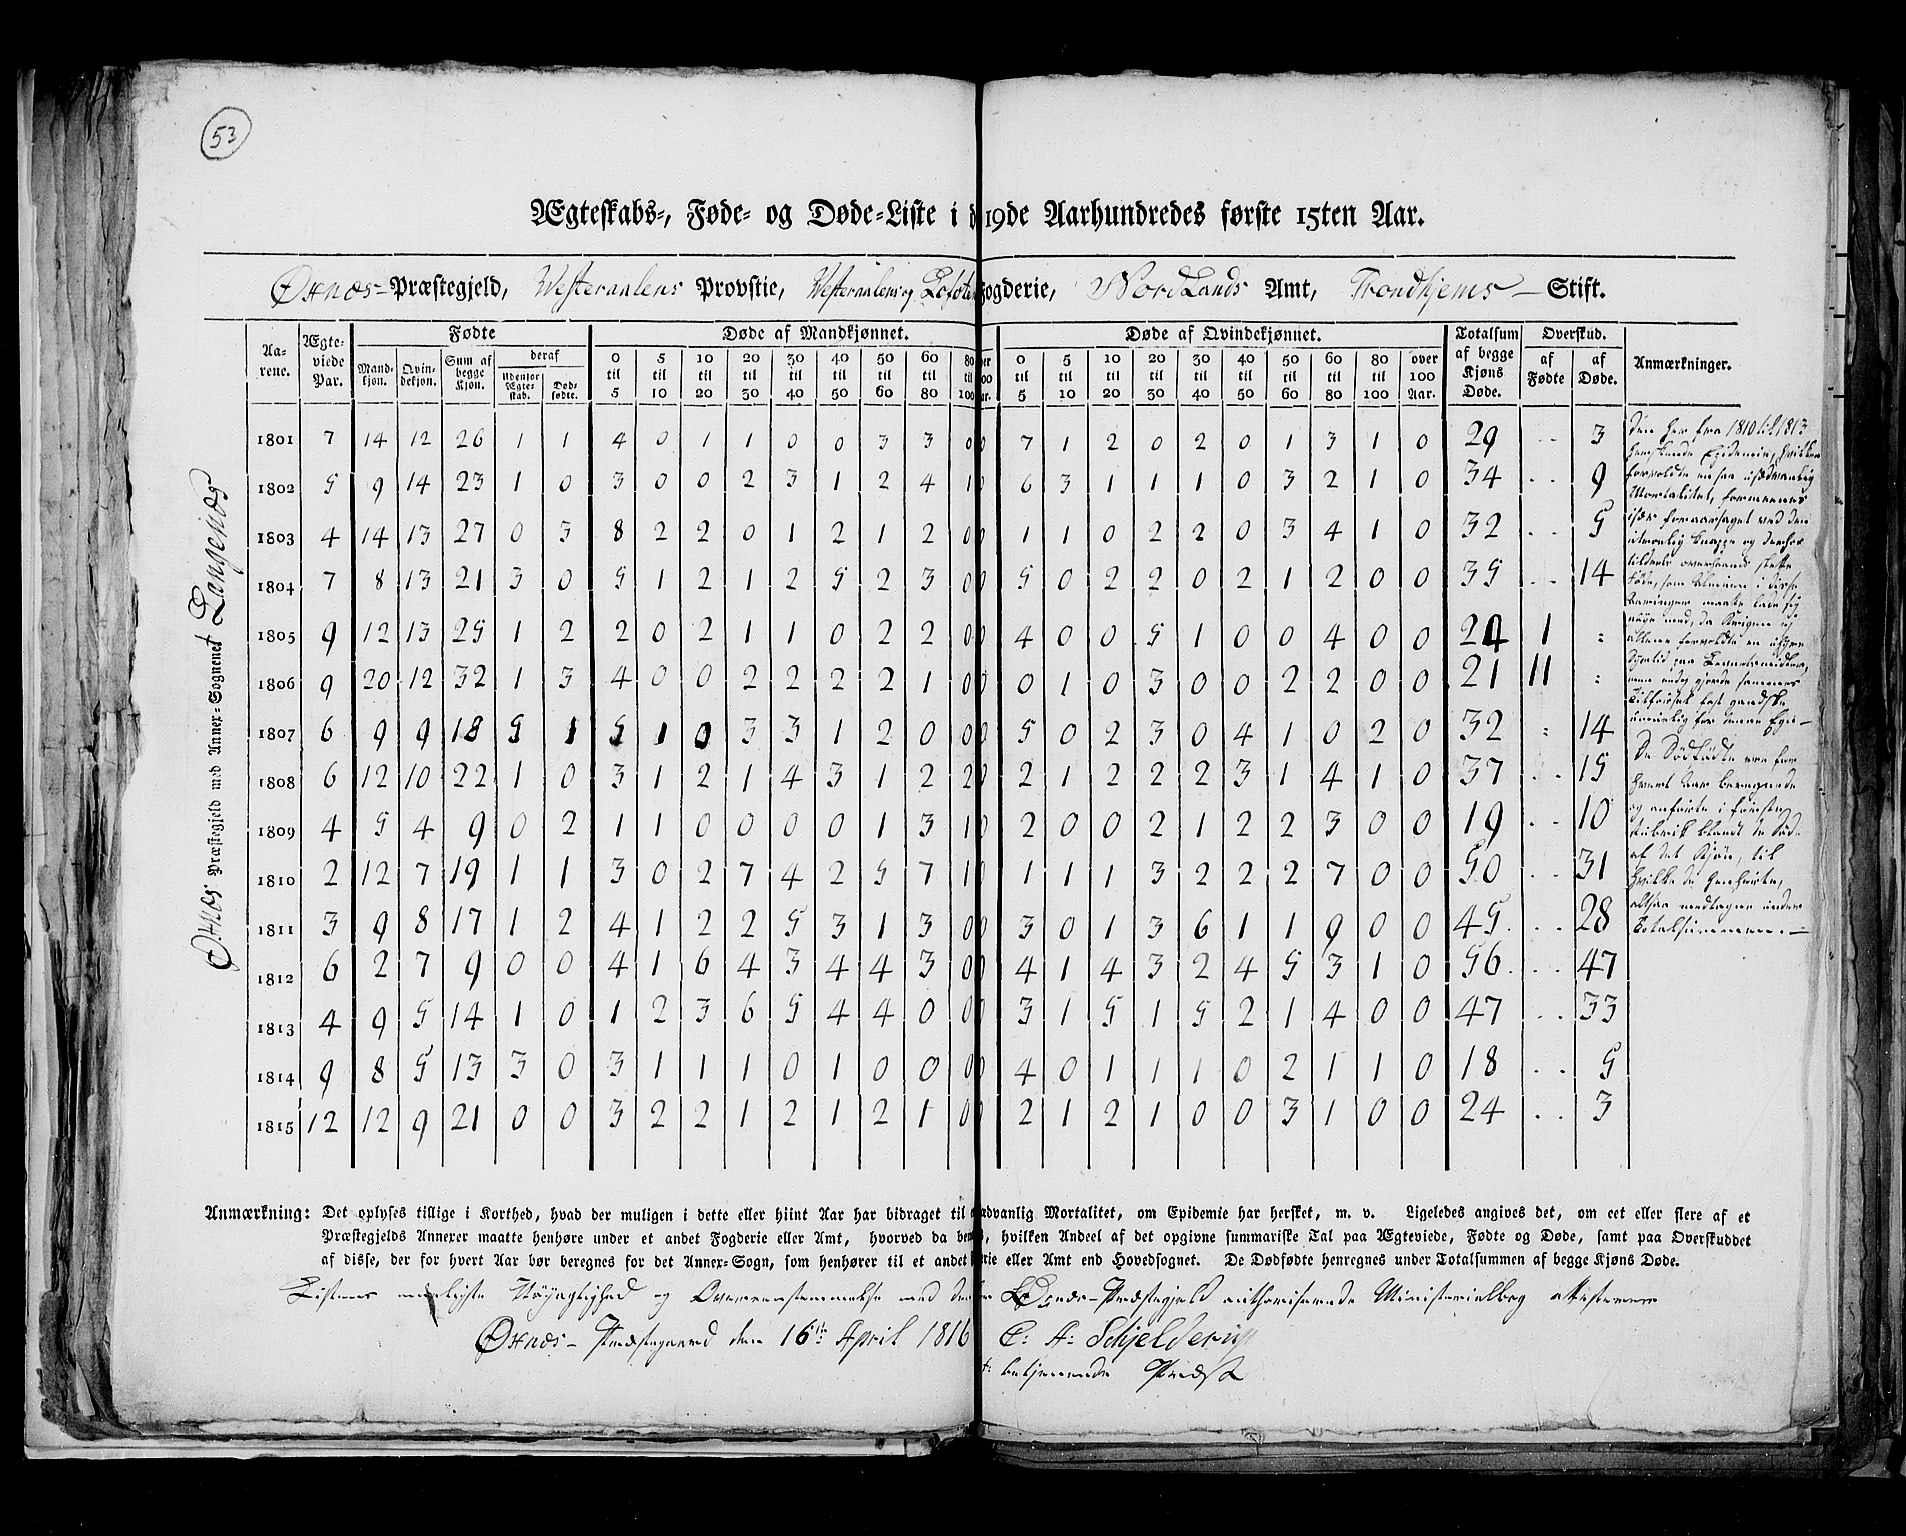 53
Ægteskabs-, Føde- og Døde-Liste i d 19de Aarhundredes første 15ten Aar.
Øxnæs - Præstegjeld, Westeraalens Provstie, Westeraalens og Lofote Fogderie, NordLands Amt, Trondhjems - Stift.
Øxnæs Præstegjeld med Annex-Sognene Langenæs
Aa- rene. Ægte- viede Par. Fødte Døde af Mandkjønnet. Døde af Qvindekjønnet. Totalsum af begge Kjøns Døde. Overskud. Anmærkninger.
Mand- kjøn. Qvin- dekjøn. Sum af begge Kjøn. deraf Udenfor Ægtes- skab. Død- fødte. 0 til 5 5 til 10 10 til 20 20 til 30 30 til 40 40 til 50 50 til 60 60 til 80 80 til 100 ver 100 ar. 0 til 5 5 til 10 10 til 20 20 til 30 30 til 40 40 til 50 50 til 60 60 til 80 80 til 100 over 100 Aar. af Fødte af Døde.
1801 7 14 12 26 1 1 4 0 1 1 0 0 3 3 0 0 7 1 2 0 2 0 1 3 1 0 29 .. 3
1802 5 9 14 23 1 0 3 0 0 2 3 1 2 4 1 0 6 3 1 1 1 0 3 2 1 0 34 .. 9
1803 4 14 13 27 0 3 8 2 2 0 1 2 1 2 0 0 1 1 0 2 2 0 3 4 1 0 32 .. 5
1804 7 8 13 21 3 0 5 1 2 1 2 5 2 3 0 0 5 0 2 2 0 2 1 2 0 0 35 .. 14
1805 9 12 13 25 1 2 2 0 2 1 1 0 2 2 0 0 4 0 0 5 1 0 0 4 0 0 24 1 =
1806 9 20 12 32 1 3 4 0 0 2 2 2 2 1 0 0 0 1 0 3 0 0 2 2 0 0 21 11 =
1807 6 9 9 18 5 1 5 1 0 3 3 1 2 0 0 0 5 0 2 3 0 4 1 0 2 0 32 = 14
1808 6 12 10 22 1 0 3 1 2 1 4 3 1 2 2 0 2 1 2 2 2 3 1 4 1 0 37 .. 15
1809 4 5 4 9 0 2 1 1 0 0 0 0 1 3 1 0 2 0 0 2 1 2 2 3 0 0 19 .. 10
1810 2 12 7 19 1 1 3 0 2 7 4 2 5 7 1 0 1 1 1 3 2 2 2 7 0 0 50 .. 31
1811 3 9 8 17 1 2 4 1 2 2 5 3 1 3 0 0 3 0 1 3 6 1 1 9 0 0 45. .. 28
1812 6 2 7 9 0 0 4 1 6 4 3 4 4 3 0 0 4 1 4 3 2 4 5 3 1 0 56. .. 47
1813 4 9 5 14 1 0 1 2 3 6 5 4 4 0 0 0 3 1 5 1 5 2 1 4 0 0 47 .. 33
1814 9 8 5 13 3 0 3 1 1 1 0 1 0 0 0 0 4 0 1 1 1 0 2 1 1 0 18 .. 5
1815 12 12 9 21 0 0 3 2 2 1 2 1 2 1 0 0 2 1 2 1 0 0 3 1 0 0 24 .. 3
Den her fra 1810 til 1813
De Dødfødte ere for
hvert Aar beregnede
og anførte i første
Rubrik blandt de Døde
af det Kjøn, til
hvilke de henhørte,
altsaa medtagne under
Totalsummen. -
Anmærkning: Det oplyses tillige i Korthed, hvad der muligen i dette eller hiint Aar har bidraget til sædvanlig Mortalitet, om Epidemie har hersket, m. v. Ligeledes angives det, om eet eller flere af et
Præstegjelds Annexer maatte henhøre under et andet Fogderie eller Amt, hvorved da bem, hvilken Andeel af det opgivne summariske Tal paa Ægteviede, Fødte og Døde, samt paa Overskuddet
af disse, der for hvert Aar bør beregnes for det Annex-Sogn, som henhører til et andet erie eller Amt end Hovedsognet. De Dødfødte henregnes under Totalsummen af begge Kjøns Døde.
Listens Nøyagtighed og Overeensstemmelse med den Øxnæs-Præstegjeld authoriserede Ministerialbog attesterer
Øxnæs - Præstegaard den 16de April 1816 C: A: Schjelderup
betjenende Præst